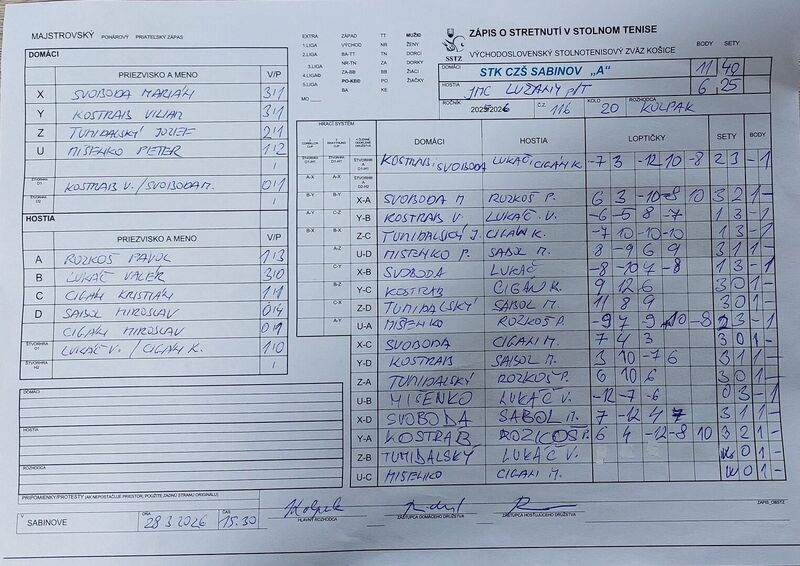 MAJSTROVSKÝ POHÁROVÝ PRIATEĽSKÝ ZÁPAS
DOMÁCI
PRIEZVISKO A MENO V/P
X SVOBODA MARIÁN 3/1
Y KOSTRAB VILIAM 3/1
Z TUMIDALSKÝ JOZEF 2/1
U MIŠENKO PETER 1/2
/
ŠTVORHRA D1 KOSTRAB V. / SVOBODA M. 0/1
ŠTVORHRA D2 /
HOSTIA
PRIEZVISKO A MENO V/P
A ROZKOŠ PAVOL 1/3
B LUKÁČ VALÉR 3/0
C CIGAN KRISTIÁN 1/1
D SABOL MIROSLAV 0/4
CIGAN MIROSLAV 0/1
ŠTVORHRA D1 LUKÁČ V. / CIGAN K. 1/0
ŠTVORHRA H2 /
DOMÁCI
HOSTIA
ROZHODCA
PRIPOMIENKY/PROTESTY (AK NEPOSTAČUJE PRIESTOR, POUŽITE ZADNÚ STRANU ORIGINÁLU)
V SABINOVE DŇA 28.3.2026 ČAS 15.30
HLAVNÝ ROZHODCA
ZÁSTUPCA DOMÁCEHO DRUŽSTVA
ZÁSTUPCA HOSŤUJÚCEHO DRUŽSTVA
ZAPIS_OBSTZ
EXTRA ZÁPAD TT MUŽI
1.LIGA VÝCHOD NR ŽENY
2.LIGA BA-TT TN DORCI
3.LIGA NR-TN ZA DORKY
4.LIGA ZA-BB BB ŽIACI
5.LIGA PO-KE PO ŽIAČKY
MO BA KE
SSTZ
ZÁPIS O STRETNUTÍ V STOLNOM TENISE
VÝCHODOSLOVENSKÝ STOLNOTENISOVÝ ZVÄZ KOŠICE
BODY SETY
DOMÁCI STK CZŠ SABINOV „A“ 11 40
HOSTIA JMC LUŽANY P/T 6 25
ROČNÍK 2025/26 Č.Z. 116 KOLO 20 ROZHODCA KOLPAK
HRACÍ SYSTÉM
DOMÁCI HOSTIA LOPTIČKY SETY BODY
KOSTRAB, SVOBODA LUKÁČ, CIGAN K. -7 3 -12 10 -8 2 3 - 1
X-A SVOBODA M ROZKOŠ P. 6 3 -10 -8 10 3 2 1 -
Y-B KOSTRAB V. LUKÁČ V. -6 -5 8 -7 1 3 - 1
Z-C TUMIDALSKÝ J. CIGAN K. -7 -10 -10 -10
U-D MIŠENKO P. SABOL M. 8 -9 6 9 3 1 1 -
X-B SVOBODA LUKÁČ -8 -10 4 -8 1 3 - 1
Y-C KOSTRAB CIGAN K. 9 12 6 3 0 1 -
Z-D TUMIDALSKÝ SABOL M. 11 8 9 3 0 1 -
U-A MIŠENKO ROZKOŠ P. -9 7 -9 10 -8 2 3 - 1
X-C SVOBODA CIGAN M. 7 4 3 3 0 1 -
Y-D KOSTRAB SABOL M. 3 10 -7 6 3 1 1 -
Z-A TUMIDALSKÝ ROZKOŠ P. 6 10 6 3 0 1 -
U-B MIŠENKO LUKÁČ V. -12 -7 -6 0 3 - 1
X-D SVOBODA SABOL M. 7 -12 4 7 3 1 1 -
Y-A KOSTRAB ROZKOŠ P. 6 4 -12 -8 10 3 2 1 -
Z-B TUMIDALSKÝ LUKÁČ V. W 0 1 -
U-C MIŠENKO CIGAN M. W 0 1 -